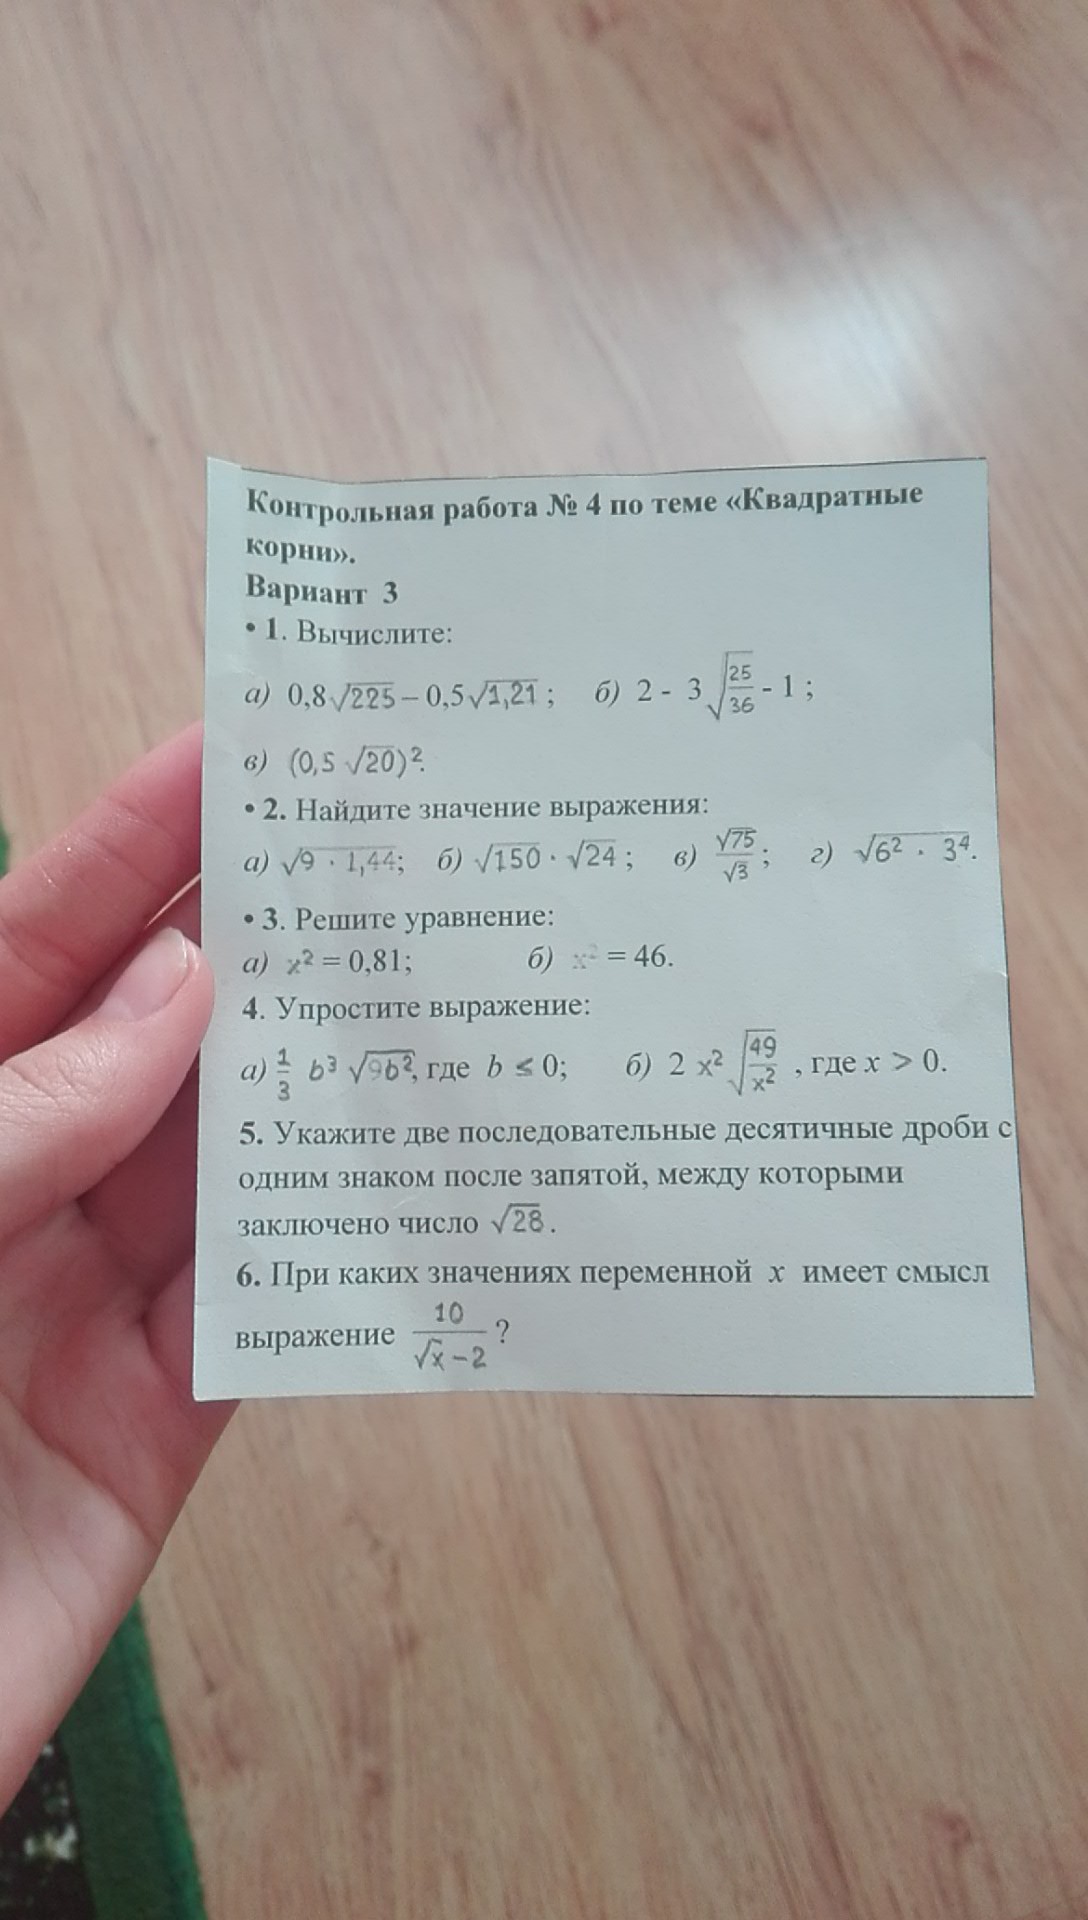 Контрольная работа № 4 по теме «Квадратные
корни».
Вариант 3
• 1. Вычислите:
а) 0,8√225 – 0,5√1,21 ; б) 2 - 3√(25/36) - 1 ;
в) (0,5 √20)².
• 2. Найдите значение выражения:
а) √(9 · 1,44); б) √150 · √24 ; в) √75/√3 ; г) √(6² · 3⁴).
• 3. Решите уравнение:
а) x² = 0,81; б) x² = 46.
4. Упростите выражение:
а) 1/3 b³ √(9b²), где b ≤ 0; б) 2 x² √(49/x²) , где x > 0.
5. Укажите две последовательные десятичные дроби с
одним знаком после запятой, между которыми
заключено число √28 .
6. При каких значениях переменной x имеет смысл
выражение 10/(√x – 2) ?